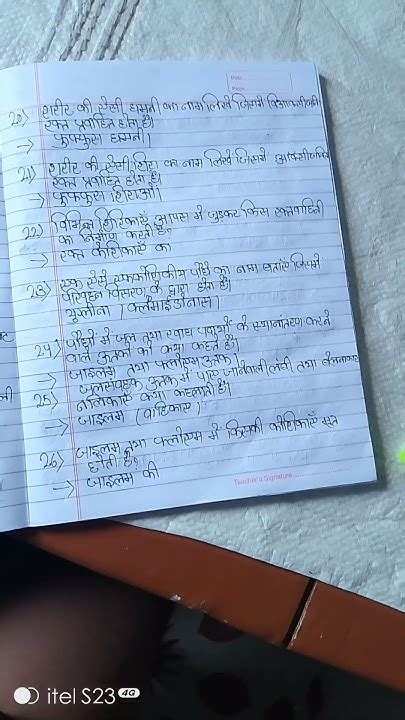 Date
Page
20) शरीर की ऐसी धमनी का नाम लिखें जिसमें
रक्त प्रवाहित होता है।
→ फुफ्फुस धमनी।
21) शरीर की ऐसी शिरा का नाम लिखें जिसमें
रक्त प्रवाहित होता है।
→ फुफ्फुस शिराओं।
22) विभिन्न शिरिकाएँ आपस में जुड़कर किस रक्तवाहिनी
का निर्माण करती है?
→ रक्त कोशिकाएँ का
23) एक ऐसे एककोशिकीय पौधे का नाम बताएँ जिसमें
परिवहन विसरण के द्वारा होता है।
(क्लेमाइडोनास)
24) पौधों में जल तथा खाद्य पदार्थों के स्थानांतरण करने
वाले ऊतकों को क्या कहते हैं?
→ जाइलम तथा फ्लोएम ऊतक।
25) जलसंवाहक ऊतक में पाए जानेवाली लंबी तथा
नलिकाएँ क्या कहलाती है।
→ जाइलम (वाहिकाएँ)
26) जाइलम तथा फ्लोएम में किसकी कोशिकाएँ मृत
होती है?
→ जाइलम की
Teacher's Signature
itel S23 4G